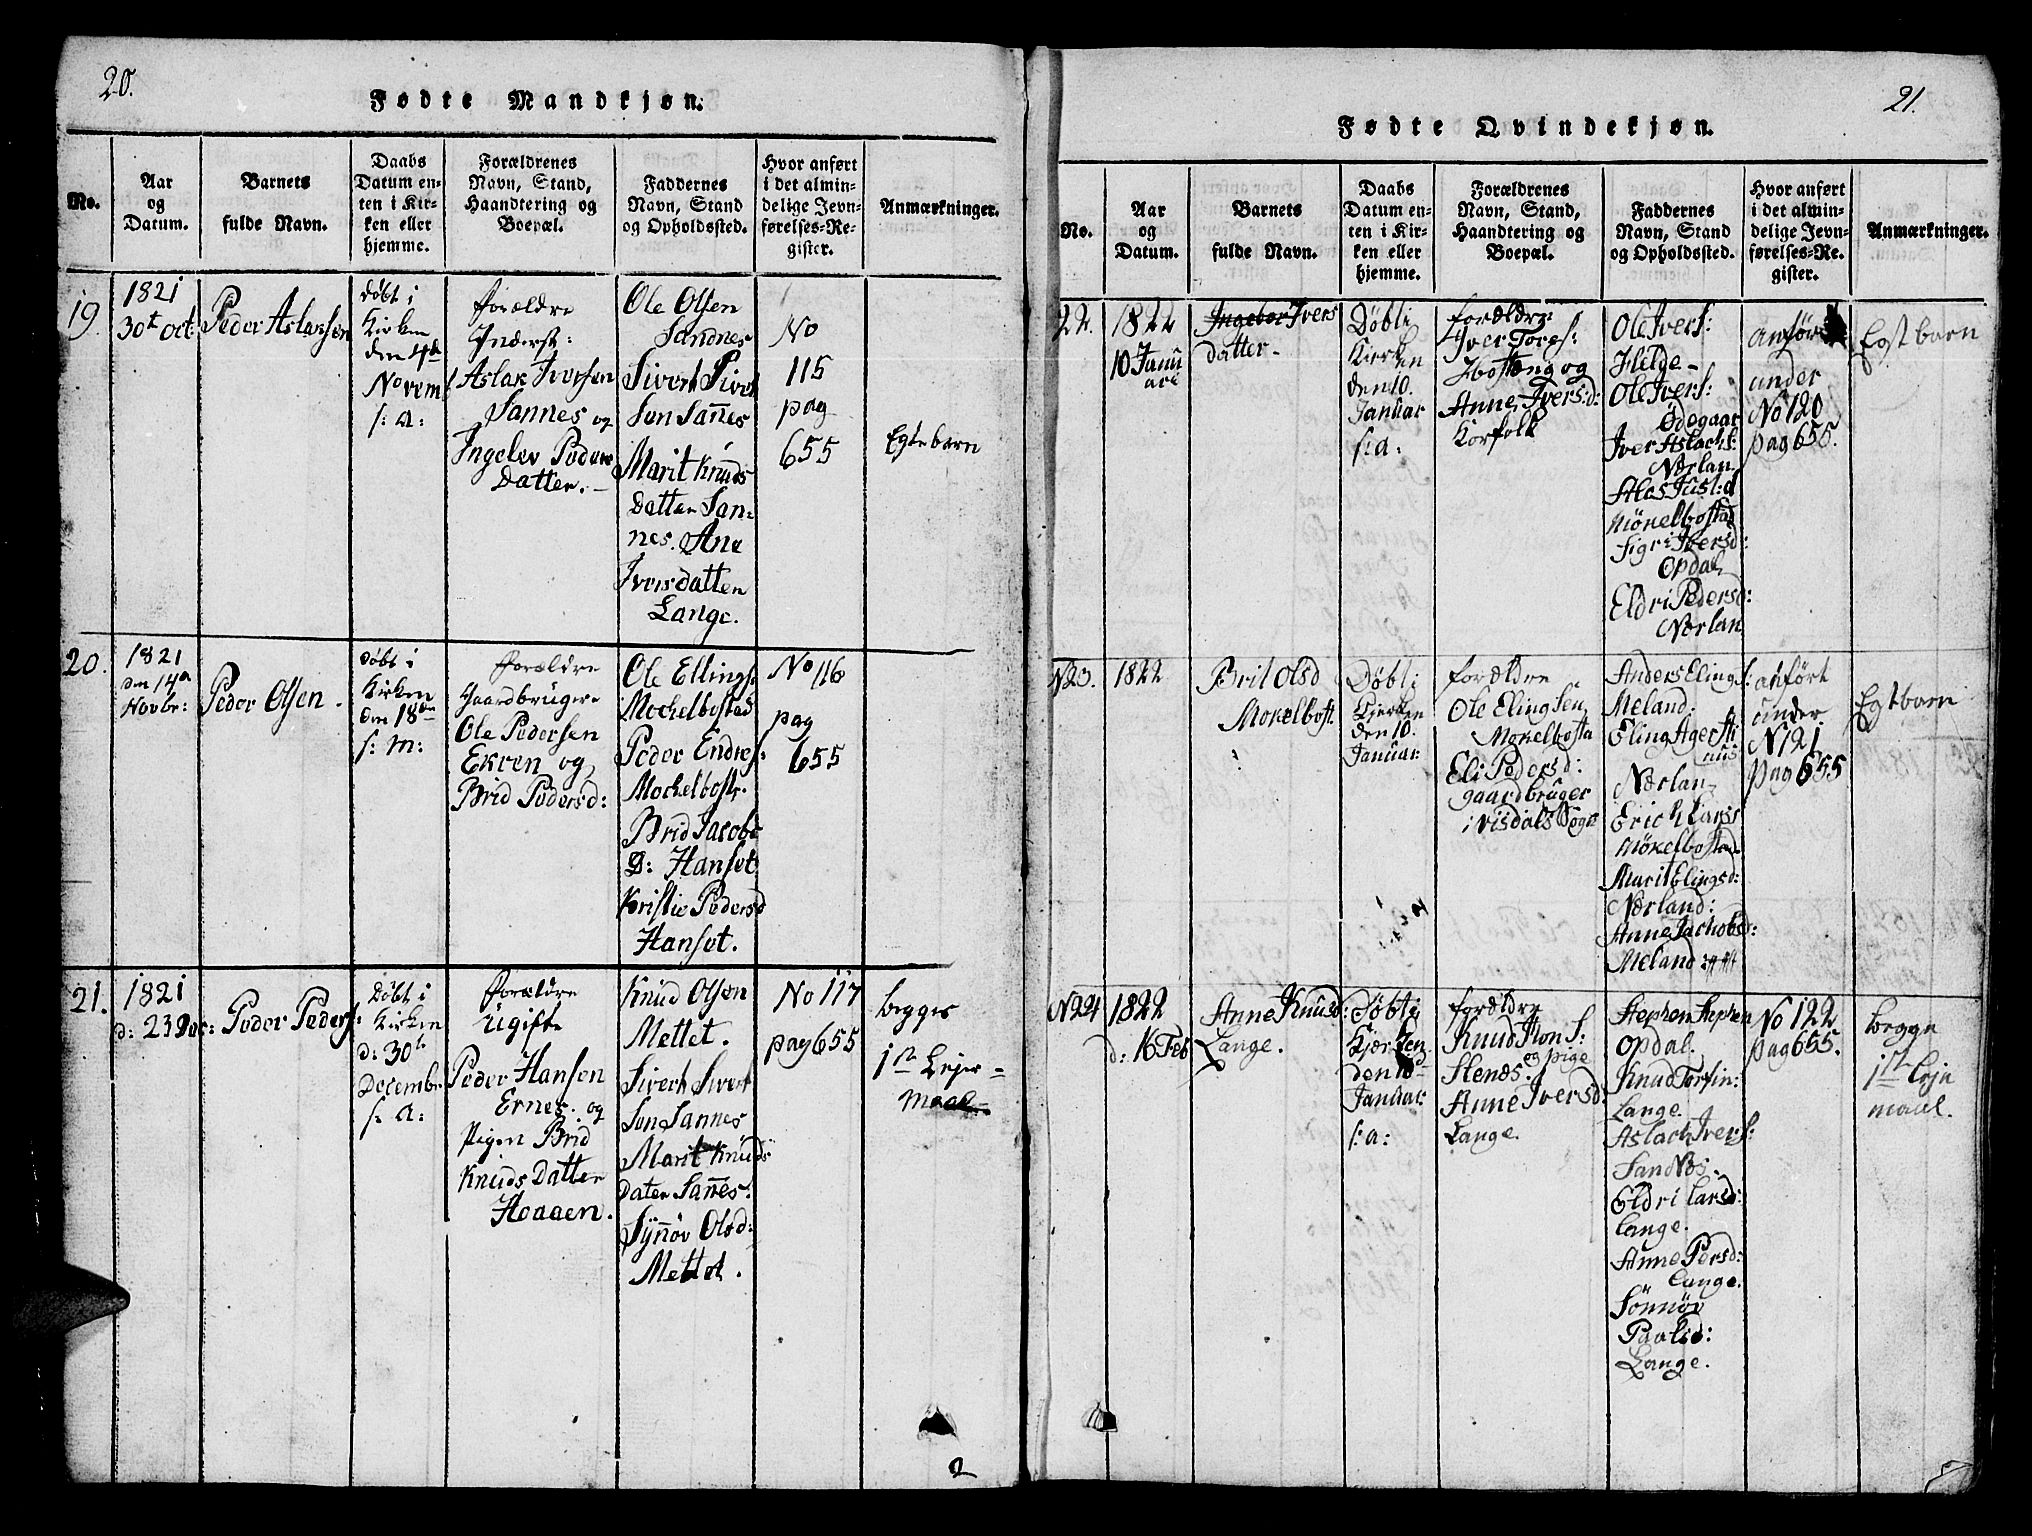 20.
Fødte Mandkjøn.
No.
Aar
og
Datum.
Barnets
fulde Navn.
Daabs
Datum en-
ten i Kir-
ken eller
hjemme.
Forældrenes
Navn, Stand,
Haandtering og
Boepæl.
Faddernes
Navn, Stand
og Opholdssted.
Hvor anført
i det almin-
delige Jevn-
førelses-Re-
gister.
Anmærkninger.
19.
1821
30t Oct:
Peder Aslansen
Døbt i
Kirken
den 4de
Novemb
s: a:
Forældre
Inderst:
Aslak Iversen
Sannes og
Ingelev Peders
Datter.
Ole Olsen
Sandnes
Sivert Sivert
Søn Sannes
Marit Knuds
Datter San=
nes. Ane
Iversdatter
Lange.
No
115
pag
655
Egtebarn
20.
1821
den 14de
Novbr:
Peder Olsen.
Døbt i
Kirken
den 18de
s: m:
Forældre
Gaardbrugere
Ole Pedersen
Ekren og
Brid Pedersd:
Ole Ellings:
Mockelbostad
Peder Endres:
Mockelbostr.
Brid Jacobs
D: Hanset
Kristie Pedersd
Hanset.
No 116
pag
655
21.
1821
d: 23 Dec:
Peder Peders:
Døbt i
Kirken
d: 30t
Decembr
s: a:
Forældre
Ugifte
Peder Hansen
Ernes. og
Pigen Brid
Knuds Datter
Hoaaen.
Knud Olsen
Mettet.
Sivert Sivert
Søn Sannes
Marit Knuds
Dater Sannes:
Synnøv Olsd:
Mettet.
No 117
pag 655
begges
1st Lejer=
maal.
2
21.
Fødte Qvindekjøn.
No.
Aar
og
Datum.
Barnets
fulde Navn.
Daabs
Datum en-
ten i Kir-
ken eller
hjemme.
Forældrenes
Navn, Stand,
Haandtering og
Boepæl.
Faddernes
Navn, Stand
og Opholdssted.
Hvor anført
i det almin-
delige Jevn-
førelses-Re-
gister.
Anmærkninger.
22.
1822
10 Janu
ari
Ingebor Ivers
datter-
Døbt i
Kirken
den 10.
Januar
s: a:
forældre
Iver Tores:
og
Anne Ivers:d:
Korfolk
Ole Ivers:
Helde-
Ole Ivers:
Ødegaar
Iver Aslachs:
Nørlan
Mökelbostad
Sigri Ivers d:
Opdal
Eldri Pedersd:
Nørlan
anført
under
No 120
pag 655.
Egt barn
N23.
1822
Brit Olsd
Mokelbost.
Døbt i
Kierken
den 10.
Januar:
forældre
Ole Elingsen
Mokelbosta
Eli Pedersd:
gaardbruger
i Visdals Sogn
Anders Elings:
Meland.
Eling Agersti
nus
Nørlan
Erich Lars
Mökelbostad
Marit Elingsd:
Nørland:
Anne Jachobsd:
Meland
anført
under
N 121
pag 655
Egtbarn
N24
1822
d: 16 Feb
Anne Knusd:
Lange.
Døbt i
Kjørken
den 10
Januar:
s: a:
forældre
Knud
Stenes. og pige
Anne Iversd:
Lange.
Stephen Stephen
Opdal.
Knud Torfin:
Lange.
Aslach Ivers:
Sandnes.
Eldri Larsd:
Lange.
Anne Persd:
Lange.
Sönnöv
Paalsd:
Lange.
No 122
pag 655.
begge
1st Leje
maal.